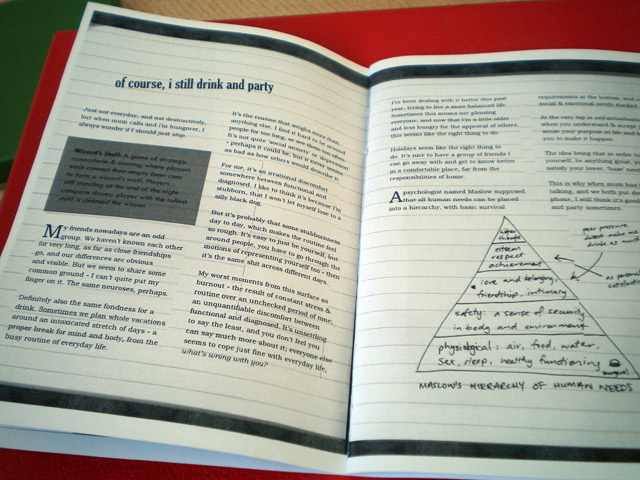 of course, i still drink and party
Just not everyday, and not destructively,
but when mum calls and i'm hungover, I
always wonder if I should just stop.
Wizard's Staff: A game of strategy,
where players
each connect their empty beer cans
to form a wizard's staff. Players
still standing at the end of the night
compare; the player with the tallest
staff is deemed the winner.
My friends nowadays are an odd
group. We haven't known each other
for very long, as far as close friendships
go, and our differences are obvious
and visible. But we seem to share some
common ground - I can't quite put my
finger on it. The same neuroses, perhaps.
Definitely also the same fondness for a
drink. Sometimes we plan whole vacations
around an intoxicated stretch of days - a
proper break for mind and body, from the
busy routine of everyday life.
It's the routine that weighs more than
anything else. I find it hard to be around
people for too long, or see them too often.
It's not quite 'social anxiety' or 'depression'
- perhaps it could be, but it never seems
as bad as how others would describe it.
For me, it's an irrational discomfort
somewhere between functional and
diagnosed. I like to think it's because I'm
stubborn, that I won't let myself lose to a
silly black dog.
But it's probably that same stubbornness
day to day, which makes the routine feel
so rough. It's easy to just be yourself, but
around people, you have to go through the
motions of representing yourself too - then
it's the same shit across different days.
My worst moments from this surface as
burnout - the result of constant stress &
routine over an unchecked period of time;
an unquantifiable discomfort between
functional and diagnosed. It's unsettling
to say the least, and you don't feel you
can say much more about it; everyone else
seems to cope just fine with everyday life,
what's wrong with you?
I've been dealing with it better this past
year, trying to live a more balanced life.
Sometimes this means not pleasing
everyone; and now that i'm a little older
and less hungry for the approval of others,
this seems like the right thing to do.
Holidays seem like the right thing to
do. It's nice to have a group of friends I
can go away with and get to know better
in a comfortable place, far from the
responsibilities of home.
A psychologist named Maslow supposed
that all human needs can be placed
into a hierarchy, with basic survival
requirements at the bottom, and
social & emotional needs stacked
At the very top is self-actualisation
when you understand & accept
sense your purpose in life and
you to make it happen.
The idea being that in order to
yourself, be anything great, you
satisfy your lower, 'base' needs
This is why when mum has
talking, and we both put down
phone, I still think it's good
and party sometimes.
esteem
respect
achievement
love and belonging,
friendship, intimacy
safety: a sense of security
in body and environment
physiological: air, food, water,
sex, sleep, healthy functioning
peer pressure
make me
drink as much
MASLOW'S HIERARCHY OF HUMAN NEEDS